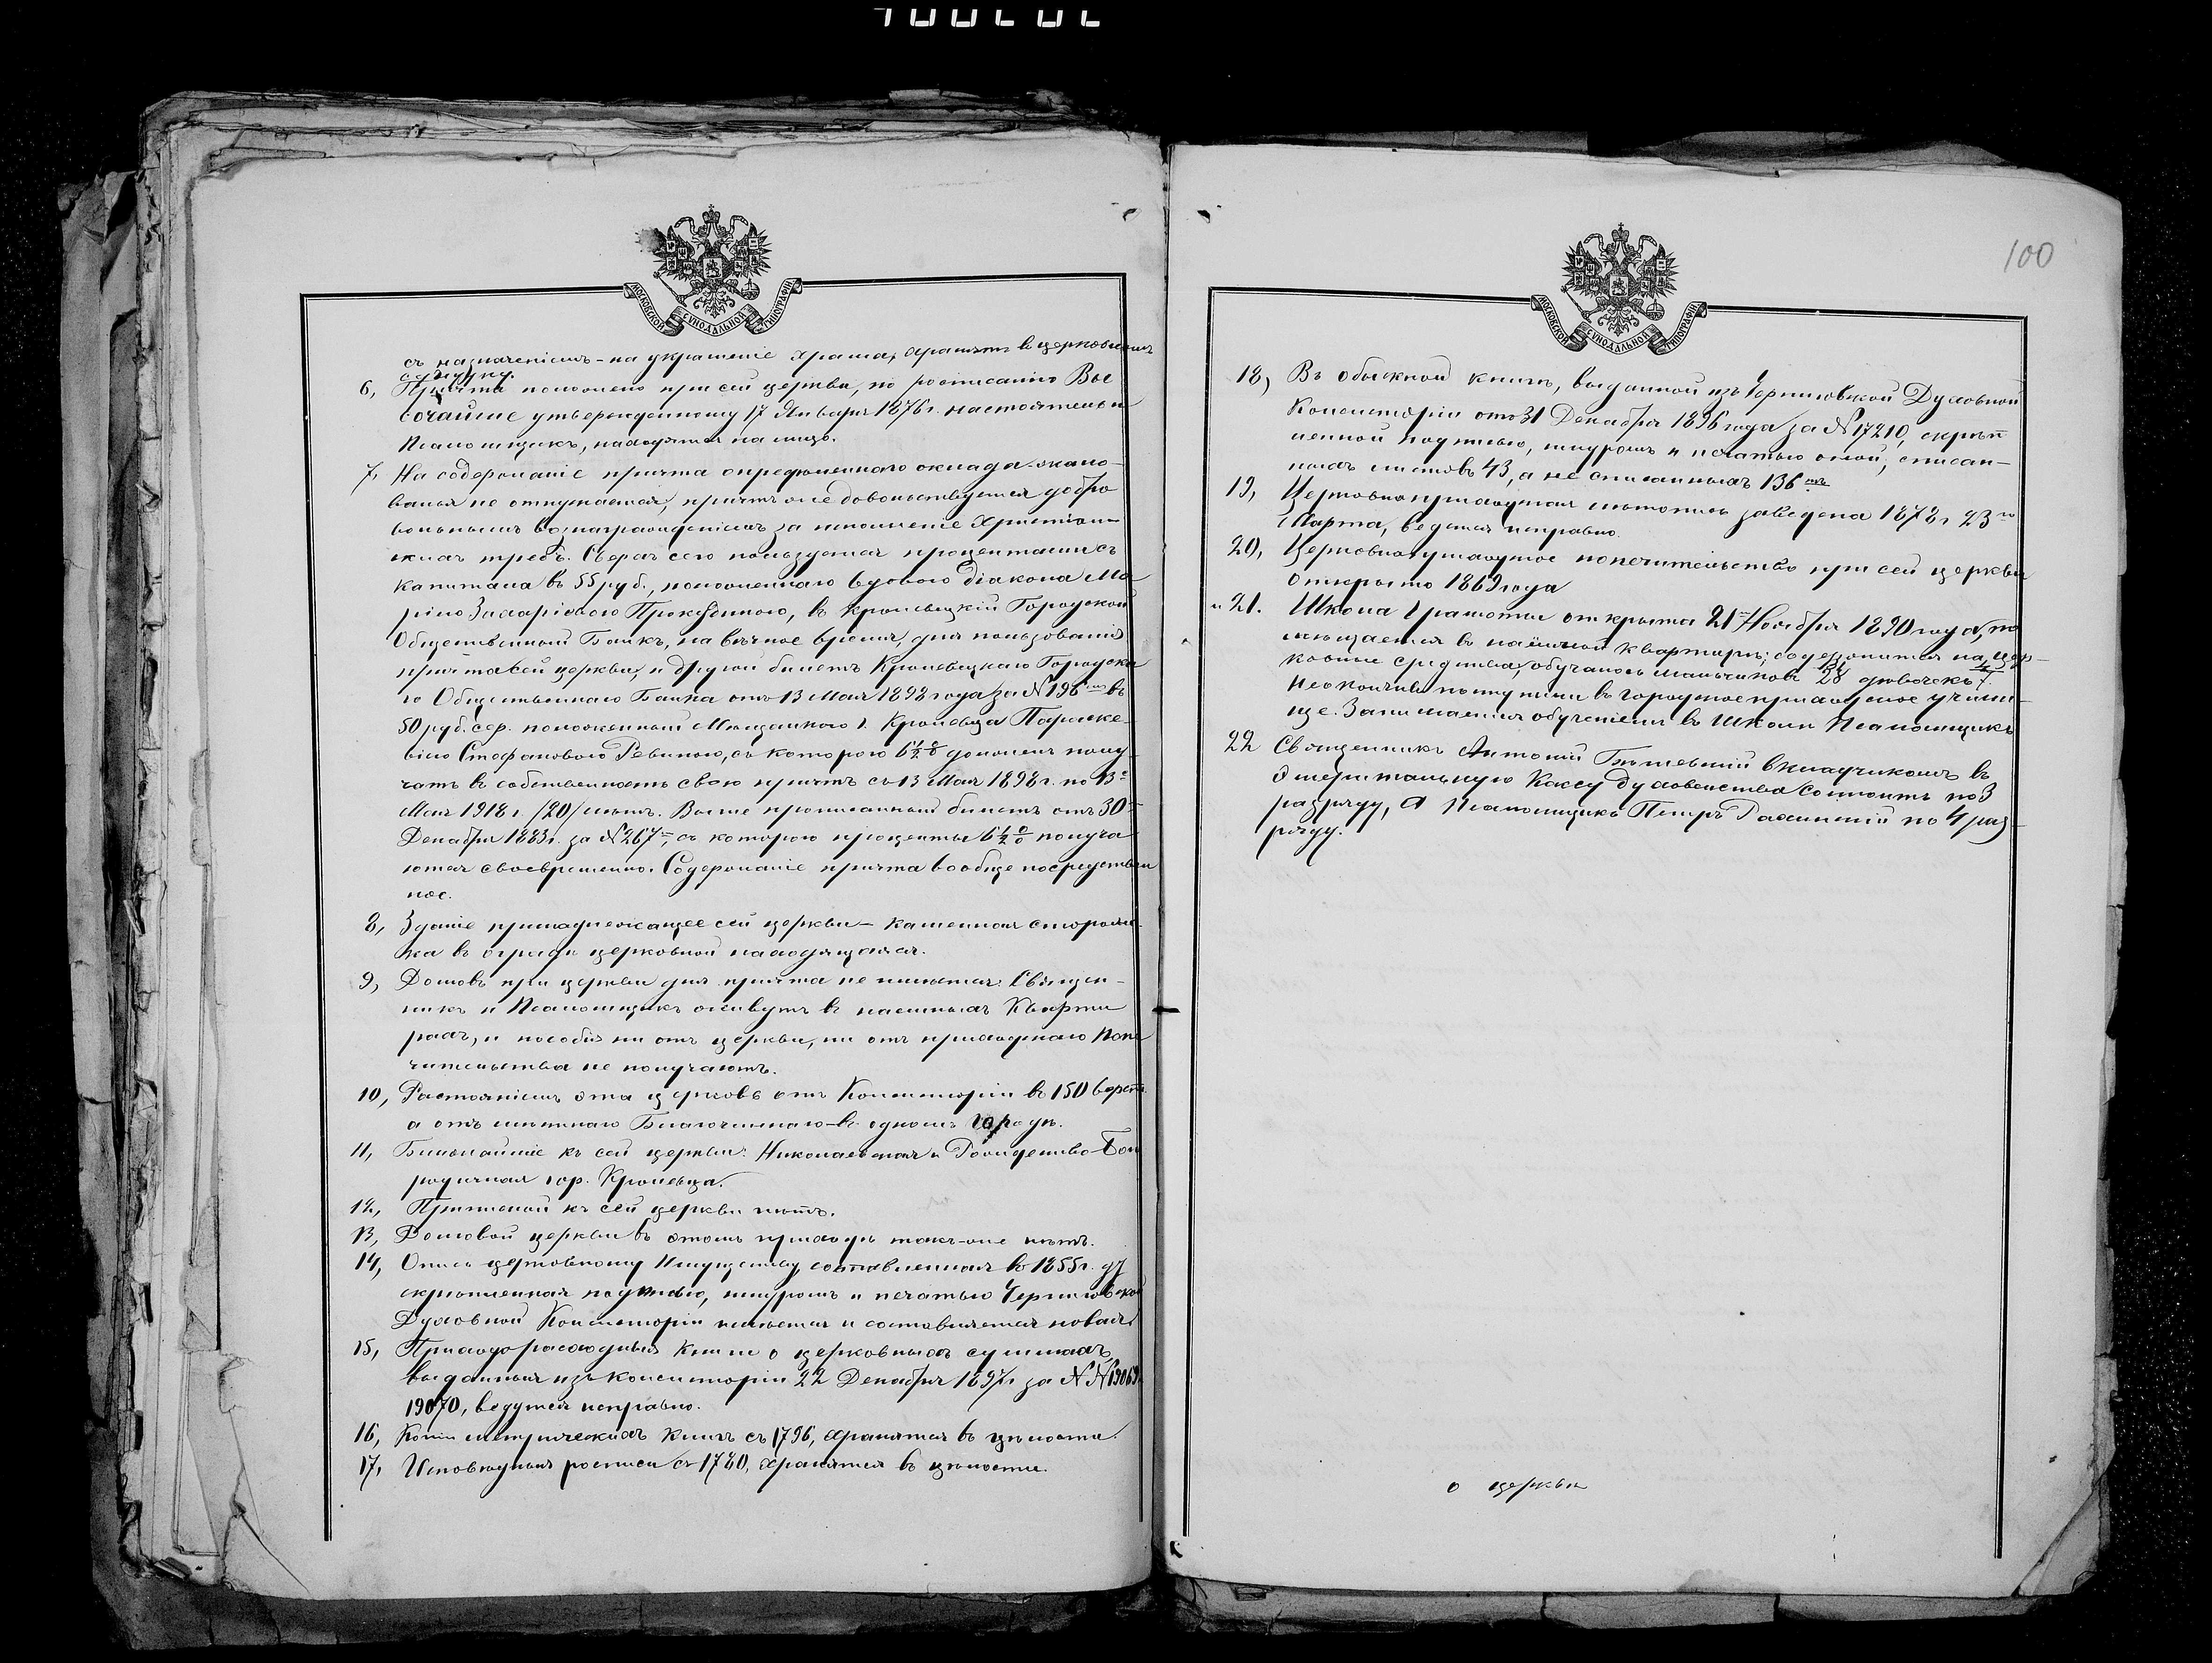 МОСКОВСКОЙ СѴНОДАЛЬНОЙ ТИПОГРАФІИ
съ назначеніемъ - на украшеніе храма, хранятъ въ церковномъ
сундуку.
6, Причта положено при сей церкви, по росписанію Вы-
сочайше утвержденному 17 Января 1876 г. настоятель и
Псаломщикъ, находятся на лицо.
7, На содержаніе причта опредѣленнаго оклада жало-
ванья не отпускается, причтъ же довольствуется добро
вольнымъ вознагражденіемъ за исполненіе Христіан-
скихъ требъ. Сверхъ сего пользуется процентами съ
капитала въ 55 руб., положеннаго вдовою діакона Ма
ріею Захаріевою, въ Кролевецкій Городской
Общественный Банкъ, на вѣчное время, для пользованія
причта сей церкви, и другой билетъ Кролевецкаго Городска
го Общественнаго Банка отъ 13 Мая 1898 года за № 196 въ
50 руб. сер. положенный Мѣщанкою г. Кролевца Параске-
віею Стефановою Ревиною, съ котораго 6½ % долженъ полу-
чать въ собственность свою причтъ съ 13 Мая 1898 г. по 13е
Мая 1918 г. /20/ лѣтъ. Выше прописанный билетъ отъ 30
Декабря 1883 г. за № 267, съ котораго проценты 6½ % получа
ются своевременно. Содержаніе причта вообще посредствен
ное.
8, Зданіе принадлежащее сей церкви - каменная сторож-
ка въ оградѣ церковной находящаяся.
9, Домовъ при церкви для причта не имѣется: Священ-
никъ и Псаломщикъ живутъ въ наемныхъ Кварти
рахъ, и пособія ни отъ церкви, ни отъ приходскаго Попе
чительства не получаютъ.
10, Растояніемъ эта церковь отъ Консисторіи въ 150 верст.
а отъ мѣстнаго Благочиннаго - въ одномъ городѣ.
11, Ближайшіе къ сей церкви: Николаевская и Рождество-Бого
родичная гор. Кролевца.
12, Приписной къ сей церкви нѣтъ.
13, Домовой церкви въ этомъ приходѣ такъ-же нѣтъ.
14, Опись церковному Имуществу, составленная въ 1855 г.
скрѣпленная подписью, шнуромъ и печатью Черниговской
Духовной Консисторіи имѣется и составляется новая.
15, Приходорасходныя книги о церковныхъ суммахъ,
выданныя изъ консисторіи 22 Декабря 1897 г за №№ 19069
19070, ведутся исправно.
16, Копіи метрическихъ книгъ съ 1796, хранятся въ цѣлости.
17, Исповѣдныя росписи съ 1780, хранятся въ цѣлости.
100
МОСКОВСКОЙ СѴНОДАЛЬНОЙ ТИПОГРАФІИ
18, Въ обыскной книгѣ, выданной изъ Черниговской Духовной
Консисторіи отъ 31 Декабря 1896 года за № 17210, скрѣп
ленной подписью, шнуромъ и печатью оной, списан-
ныхъ листовъ 43, а не списанныхъ 136
19, Церковноприходская лѣтопись заведена 1878 г 23го
Марта, ведется исправно.
20, Церковноприходское попечительство при сей церкви
открыто 1869 года
21. Школа Грамоты открыта 21 Ноября 1890 года, по
мѣщается въ наемной квартирѣ; содержится на цер-
ковные средства, обучалось мальчиковъ 28 дѣвочекъ 7
Неокончивъ поступили въ городское приходское учили-
ще. Занимается обученіемъ въ Школѣ Псаломщикъ
22 Священникъ Антоній вкладчикомъ въ
эмеритальную Кассу Духовенства состоитъ по 3
разряду, а Псаломщикъ Петръ по 4 раз-
ряду.
о церкви